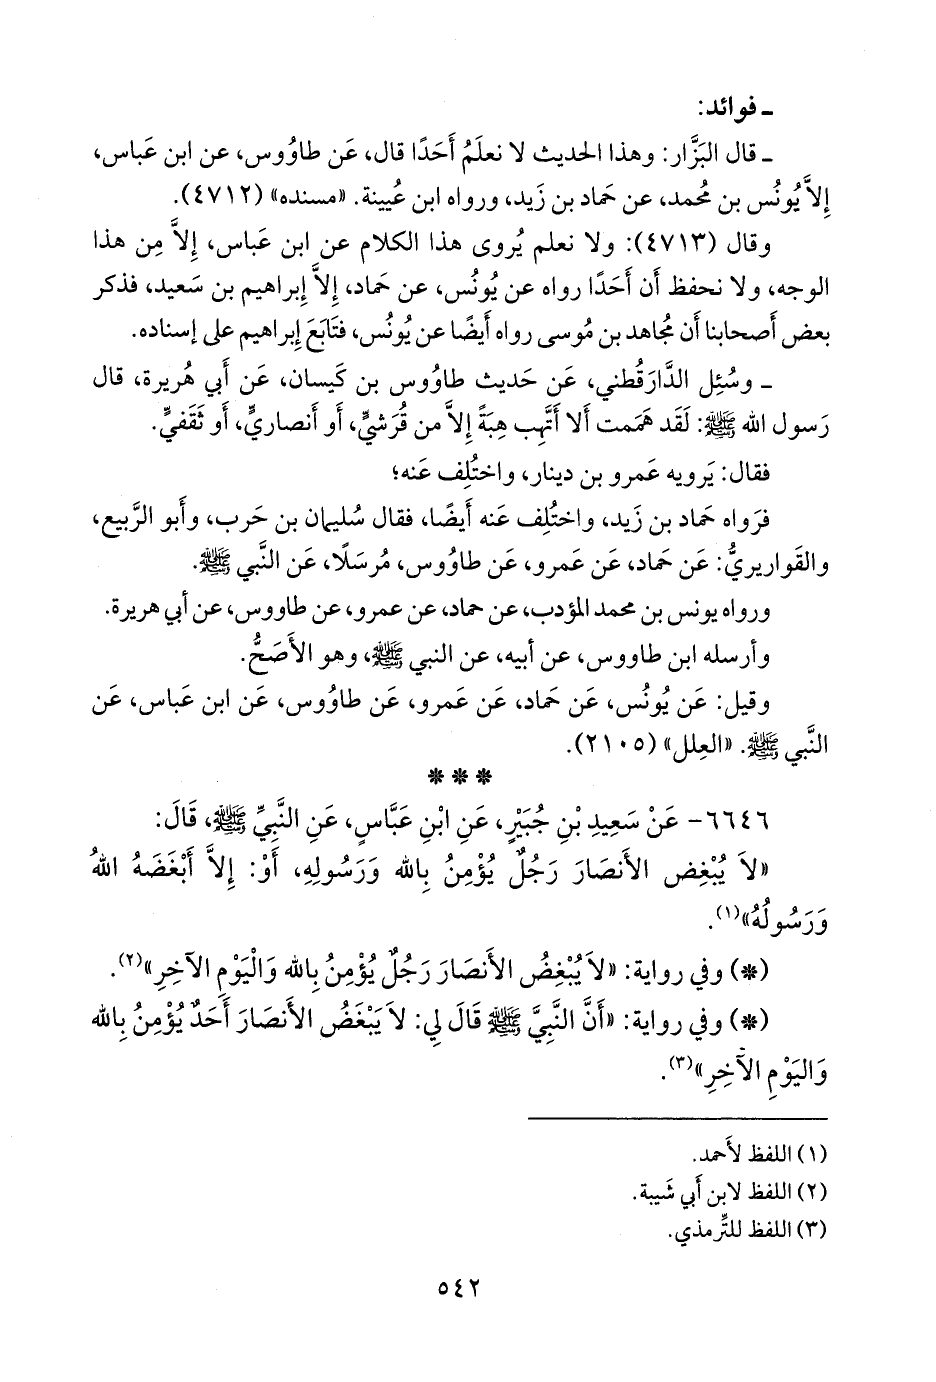 ـ فوائد:
ـ قال البَزَّار: وهذا الحديث لا نعلَمُ أَحَدًا قال، عَن طاوُوس، عن ابن عَباس،
إِلاَّ يُونُس بن مُحمد، عن حَماد بن زَيد، ورواه ابن عُيينة. «مسنده» (٤٧١٢).
وقال (٤٧١٣): ولا نعلم يُروى هذا الكلام عن ابن عَباس، إِلاَّ مِن هذا
الوجه، ولا نحفظ أَن أَحَدًا رواه عن يُونُس، عن حَماد، إِلاَّ إِبراهيم بن سَعيد، فذكر
بعض أَصحابنا أَن مُجاهد بن مُوسى رواه أَيضًا عن يُونُس، فتَابَعَ إِبراهيم على إسناده.
ـ وسُئِل الدَّارَقُطني، عَن حَديث طاوُوس بن كَيسان، عَن أَبي هُريرة، قال
رَسول الله ﷺ: لَقَد هَمَمت أَلا أَتَّهِب هِبَةً إِلاَّ من قُرَشيٍّ، أَو أَنصاريٍّ، أَو ثَقَفيٍّ.
فقال: يَرويه عَمرو بن دينار، واختُلِف عَنه؛
فرَواه حَماد بن زَيد، واختُلِف عَنه أَيضًا، فقال سُليمان بن حَرب، وأَبو الرَّبيع،
والقَواريريُّ: عَن حَماد، عَن عَمرو، عَن طاوُوس، مُرسَلًا، عَن النَّبي ﷺ.
ورواه يونس بن محمد المؤدب، عن حماد، عن عمرو، عن طاووس، عن أبي هريرة.
وأرسله ابن طاووس، عن أبيه، عن النبي ﷺ، وهو الأَصَحُّ.
وقيل: عَن يُونُس، عَن حَماد، عَن عَمرو، عَن طاوُوس، عَن ابن عَباس، عَن
النَّبي ﷺ. «العِلل» (٢١٠٥).
***
٦٦٤٦- عَنْ سَعِيدِ بْنِ جُبَيْرٍ، عَنِ ابْنِ عَبَّاسٍ، عَنِ النَّبِيِّ ﷺ، قَالَ:
«لاَ يُبْغِض الأَنصَارَ رَجُلٌ يُؤْمِنُ بِالله وَرَسُولِهِ، أَوْ: إِلاَّ أَبْغَضَهُ اللهُ
وَرَسُولُهُ»(١).
(*) وفي رواية: «لاَ يُبْغِضُ الأَنصَارَ رَجُلٌ يُؤْمِنُ بِالله وَالْيَوْمِ الآخِرِ»(٢).
(*) وفي رواية: «أَنَّ النَّبِيَّ ﷺ قَالَ لِي: لاَ يَبْغَضُ الأَنصَارَ أَحَدٌ يُؤْمِنُ بِالله
وَاليَوْمِ الآخِرِ»(٣).
(١) اللفظ لأَحمد.
(٢) اللفظ لابن أَبي شَيبة.
(٣) اللفظ للتِّرمذي.
٥٤٢